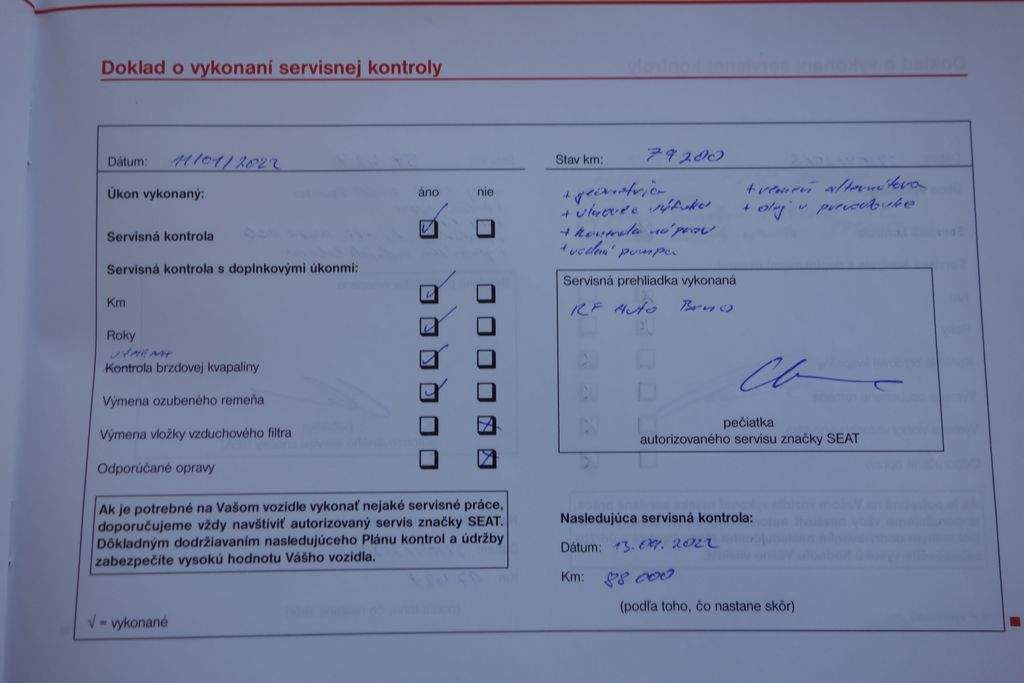 Doklad o vykonaní servisnej kontroly
Dátum: 11/01/2022
Stav km: 79200
Úkon vykonaný: áno nie
Servisná kontrola
Servisná kontrola s doplnkovými úkonmi:
Km
Roky
Kontrola brzdovej kvapaliny
Výmena ozubeného remeňa
Výmena vložky vzduchového filtra
Odporúčané opravy
+ geometria
+ kontrola náprav
+ vodní pumpa
+ olej v převodovke
Servisná prehliadka vykonaná
RF Auto Brno
pečiatka
autorizovaného servisu značky SEAT
Ak je potrebné na Vašom vozidle vykonať nejaké servisné práce,
doporučujeme vždy navštíviť autorizovaný servis značky SEAT.
Dôkladným dodržiavaním nasledujúceho Plánu kontrol a údržby
zabezpečíte vysokú hodnotu Vášho vozidla.
Nasledujúca servisná kontrola:
Dátum: 13.09.2022
Km: 88 000
(podľa toho, čo nastane skôr)
√ = vykonané